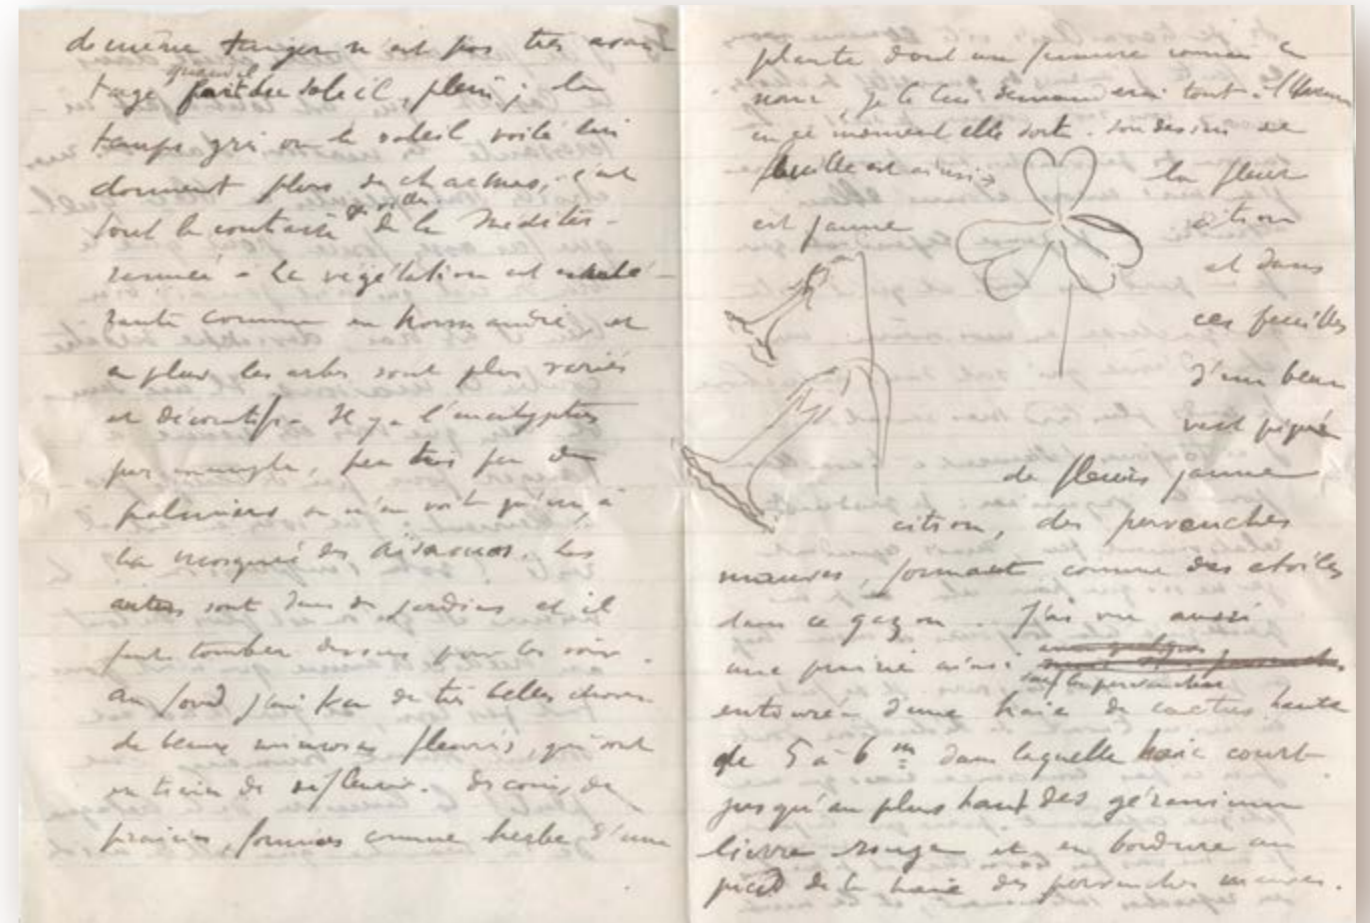 de même Tanger n'est pas très avan-
tagé quand il fait du soleil, plein; le
temps gris ou le soleil voilé lui
donnent plus de charmes, c'est
tout le contraire de la Mediter-
rannée - La vegétation est
comme en Normandie, et
en plus les arbres sont plus variés
et décoratifs. Il y a l'eucalyptus
par exemple, peu très peu de
palmiers on n'en voit qu'un, à
la mosquée des Aïsaouas. Les
autres sont dans des jardins et il
faut tomber dessus pour les voir.
Au fond j'ai vu de très belles choses
de beaux mimosas fleuris, qui sont
en train de défleurir. des coins, de
prairies, formées comme herbe d'une
plante dont on
nom, je te le demanderai tout à l'heure
en ce moment elle sort. son dessin de
feuille est ainsi la fleur
est jaune citron
et dans
ces feuilles
d'un beau
vert piquée
de fleurs jaune
citron, des pervenches
mauves, formant comme des etoiles
dans ce gazon. J'ai vu aussi
une prairie ainsi
sauf les pervenches
entourée d'une haie de cactus haute
de 5 à 6 m dans laquelle haie court
jusqu'au plus haut des géranium
lierre rouge et en bordure au
pied de la haie des pervenches mauves.